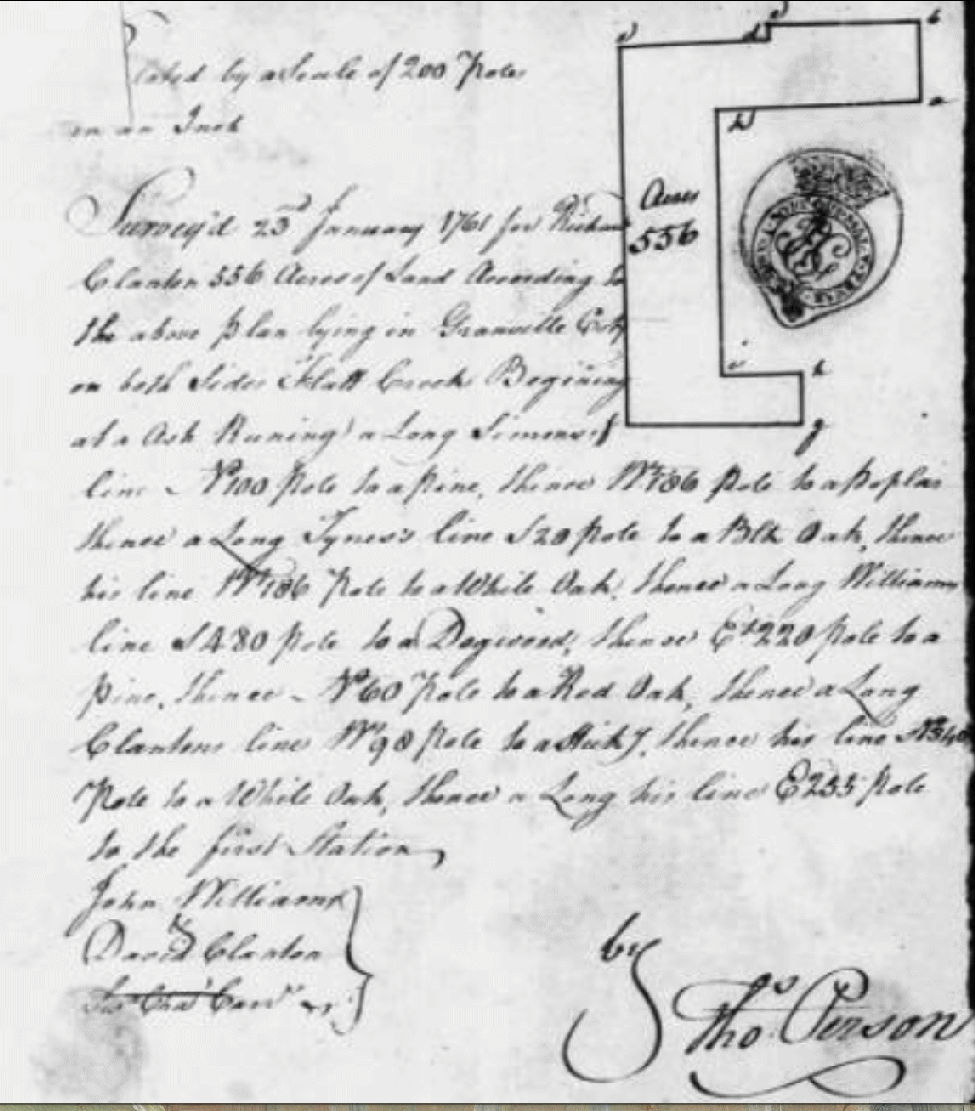 by a Scale of 200 Poles
in an Inch
Acres
556
Survey'd 23d January 1761 for Richard
Clanton 556 Acres of Land According to
the above plan lying in Granville Cty
on both Sides Flatt Creek Begining
at a Ash Runing a Long Simms's
line No 100 Pole to a Pine, thence Wt 186 Pole to a Poplar
thence a Long Tynes's line S 20 Pole to a Blk Oak, thence
his line Wt 186 Pole to a White Oak, thence a Long Williams
line S 480 Pole to a Dogwood, thence Et 220 Pole to a
Pine, thence No 60 Pole to a Red Oak, thence a Long
Clantons line Wt 90 Pole to a Hicky, thence his line N 340
Pole to a White Oak, thence a Long his line E 255 Pole
to the first Station
John Williams
David Clanton
by
Thos Person